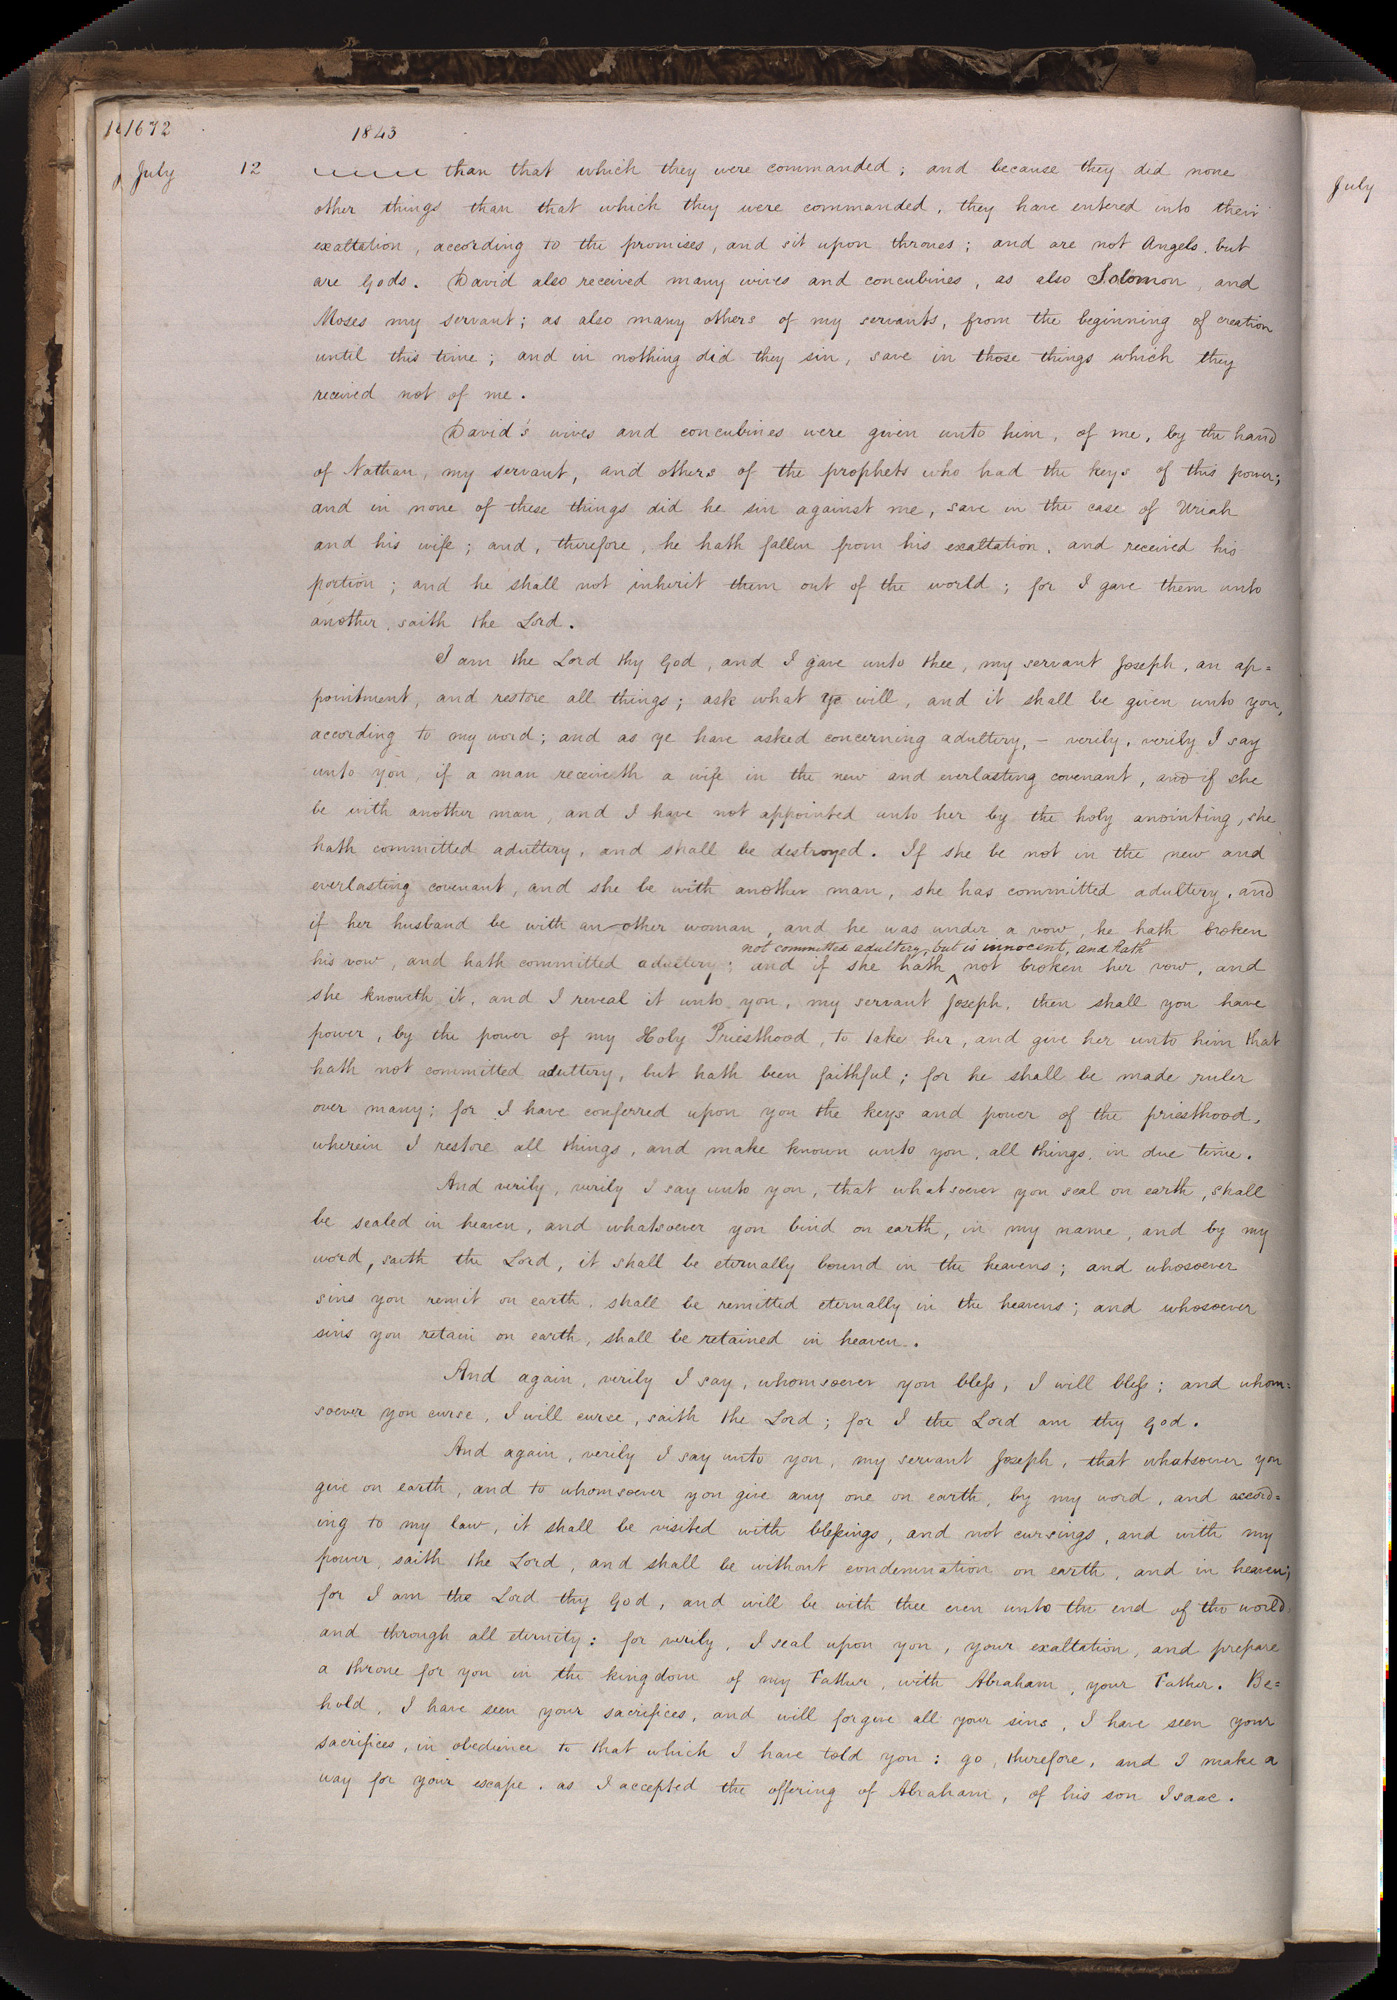 1672 1843
July 12 than that which they were commanded; and because they did none
other things than that which they were commanded, they have entered into their
exaltation, according to the promises, and sit upon thrones; and are not Angels, but
are Gods. David also received many wives and concubines, as also Solomon, and
Moses my servant; as also many others of my servants, from the beginning of creation
until this time; and in nothing did they sin, save in those things which they
received not of me.
David's wives and concubines were given unto him, of me, by the hand
of Nathan, my servant, and others of the prophets who had the keys of this power;
and in none of these things did he sin against me, save in the case of Uriah
and his wife; and, therefore, he hath fallen from his exaltation, and received his
portion; and he shall not inherit them out of the world; for I gave them unto
another, saith the Lord.
I am the Lord thy God, and I gave unto thee, my servant Joseph, an ap=
pointment, and restore all things; ask what ye will, and it shall be given unto you,
according to my word; and as ye have asked concerning adultery, – verily, verily I say
unto you, if a man receiveth a wife in the new and everlasting covenant, and if she
be with another man, and I have not appointed unto her by the holy anointing, she
hath committed adultery, and shall be destroyed. If she be not in the new and
everlasting covenant, and she be with another man, she has committed adultery, and
if her husband be with another woman, and he was under a vow, he hath broken
not committed adultery, but is innocent, and hath
his vow, and hath committed adultery; and if she hath ^ not broken her vow, and
she knoweth it, and I reveal it unto you, my servant Joseph, then shall you have
power, by the power of my Holy Priesthood, to take her, and give her unto him that
hath not committed adultery, but hath been faithful; for he shall be made ruler
over many; for I have conferred upon you the keys and power of the priesthood,
wherein I restore all things, and make known unto you, all things, in due time.
And verily, verily I say unto you, that whatsoever you seal on earth, shall
be sealed in heaven, and whatsoever you bind on earth, in my name, and by my
word, saith the Lord, it shall be eternally bound in the heavens; and whosoever
sins you remit on earth, shall be remitted eternally in the heavens; and whosoever
sins you retain on earth, shall be retained in heaven.
And again, verily I say, whomsoever you bless, I will bless; and whom=
soever you curse, I will curse, saith the Lord; for I the Lord am thy God.
And again, verily I say unto you, my servant Joseph, that whatsoever you
give on earth, and to whomsoever you give any one on earth, by my word, and accord=
ing to my law, it shall be visited with blessings, and not cursings, and with my
power, saith the Lord, and shall be without condemnation on earth, and in heaven;
for I am the Lord thy God, and will be with thee even unto the end of the world,
and through all eternity: for verily, I seal upon you, your exaltation, and prepare
a throne for you in the kingdom of my Father, with Abraham, your Father. Be=
hold, I have seen your sacrifices, and will forgive all your sins, I have seen your
sacrifices, in obedience to that which I have told you: go, therefore, and I make a
way for your escape, as I accepted the offering of Abraham, of his son Isaac.
July